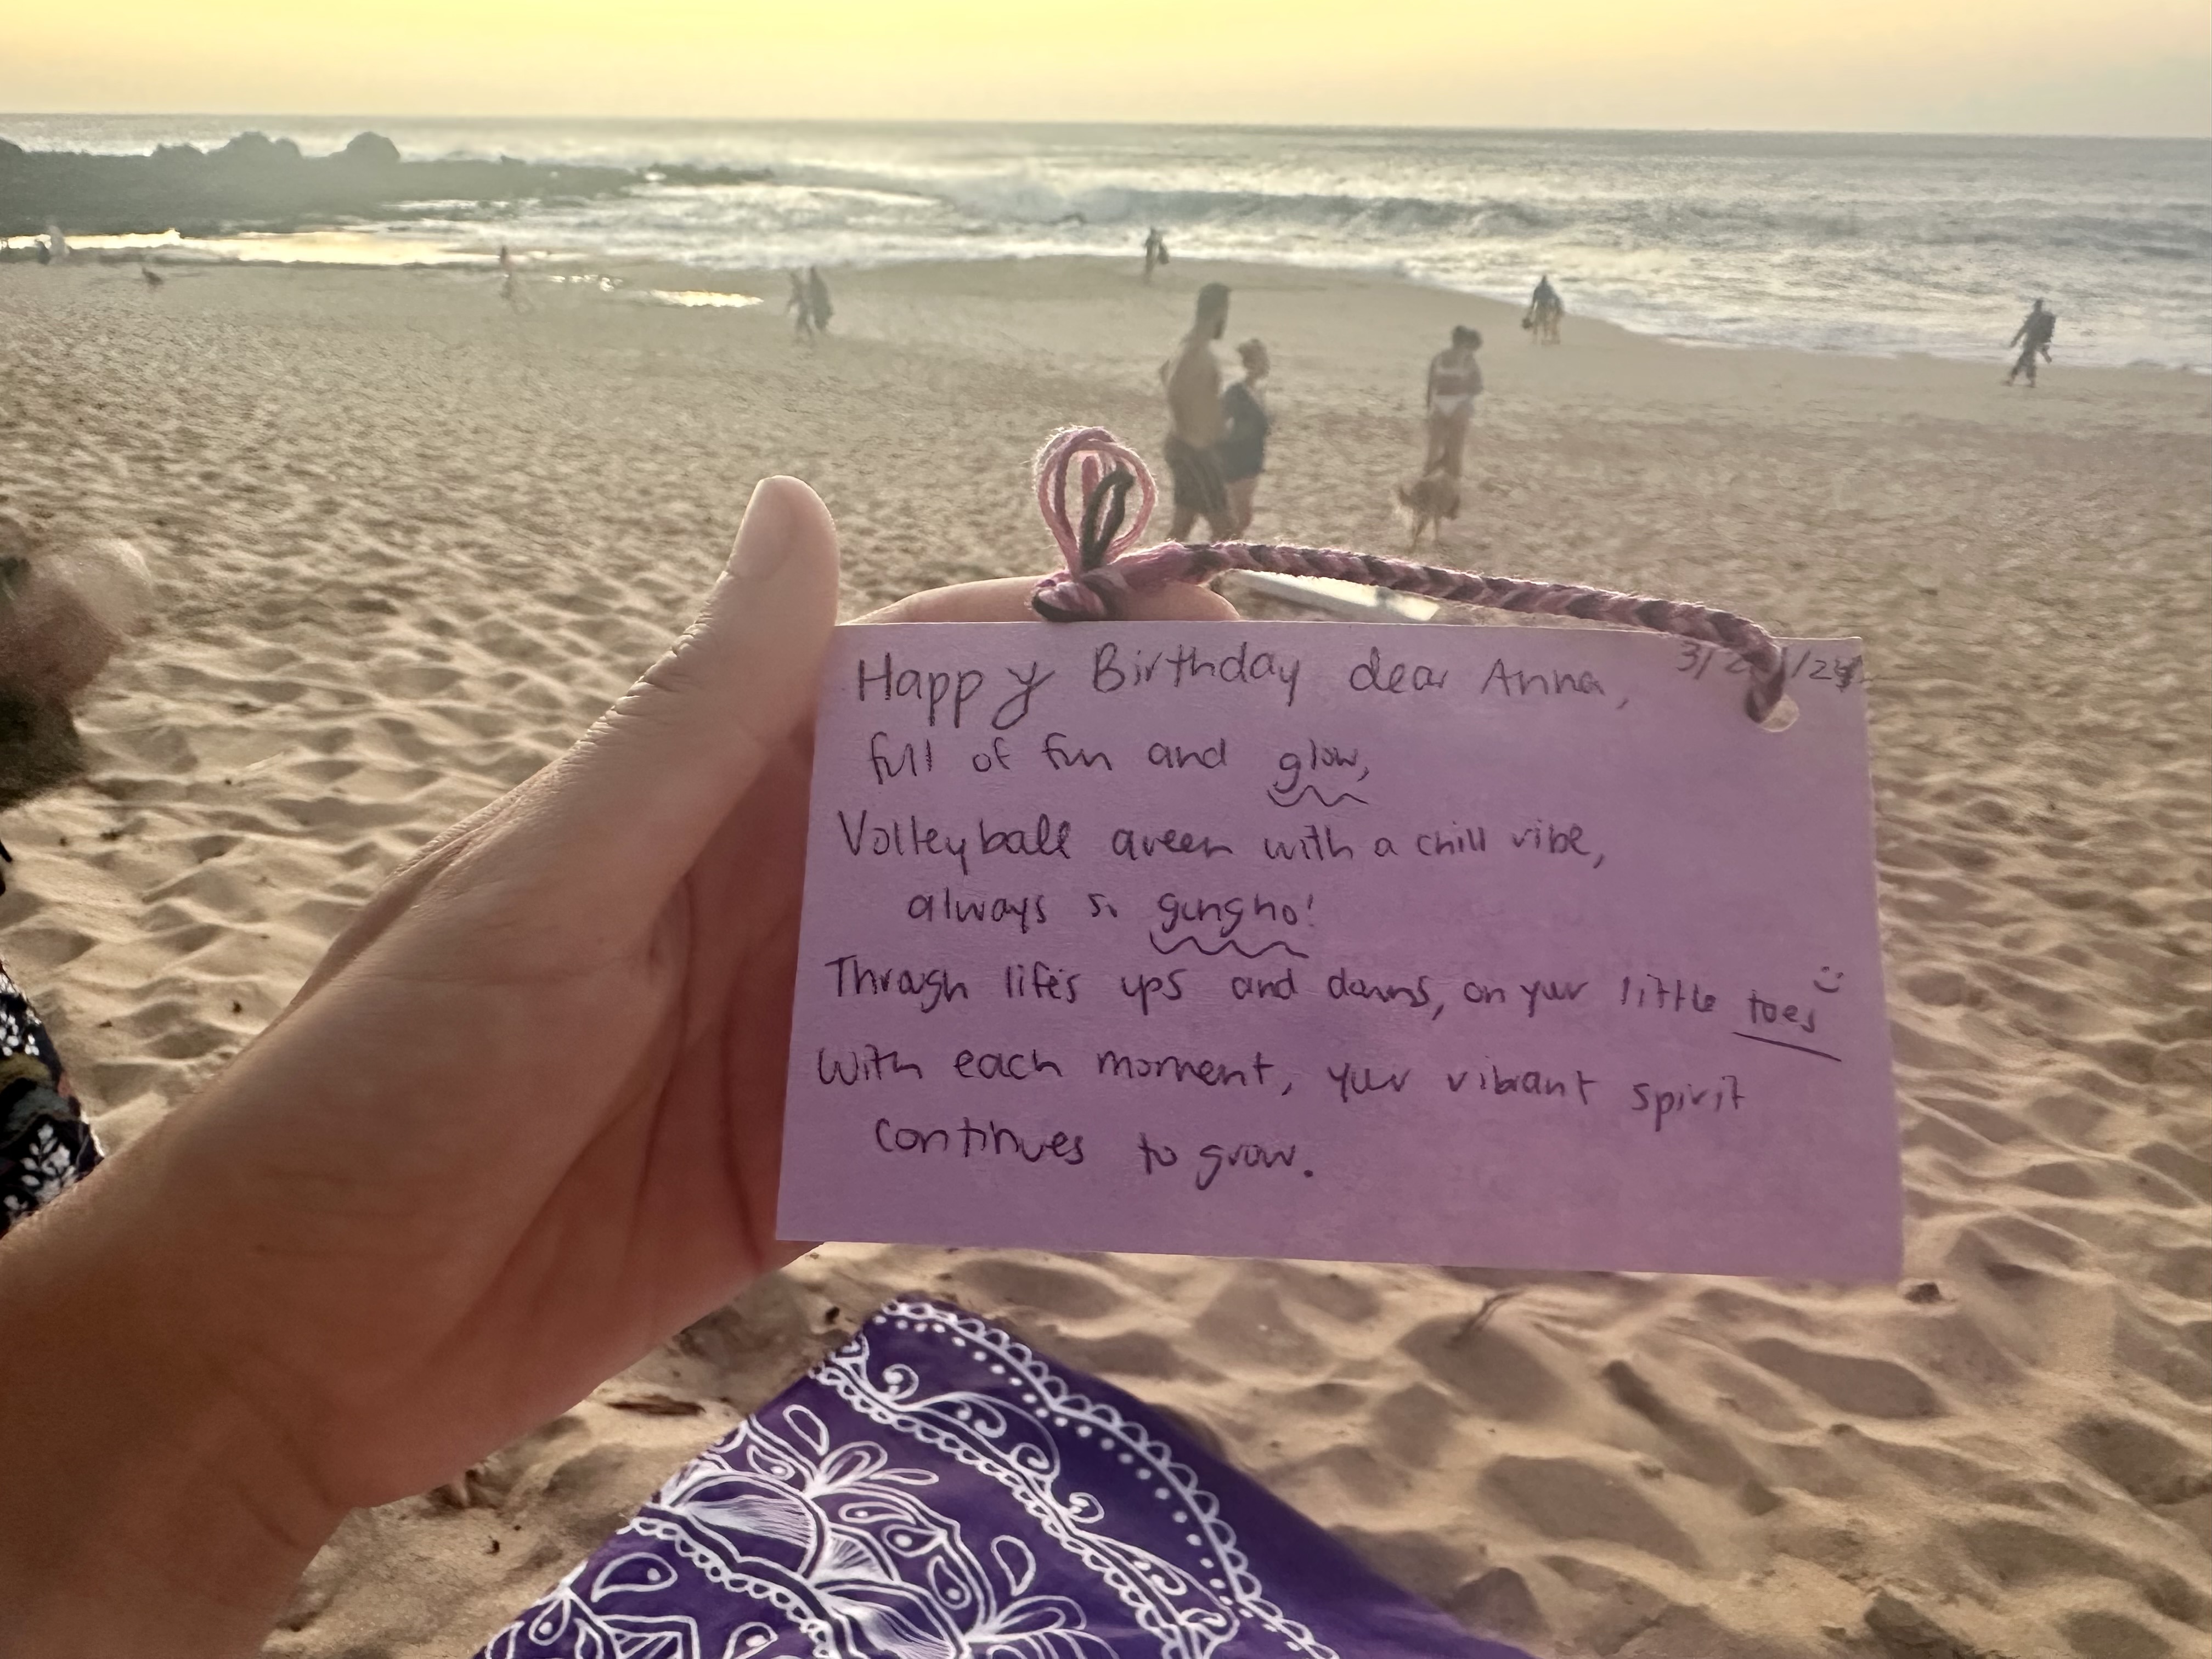 Happy Birthday dear Anna,
full of fun and glow,
Volleyball queen with a chill vibe,
always so gungho!
Through life's ups and downs, on your little toes :)
With each moment, your vibrant spirit
continues to grow.